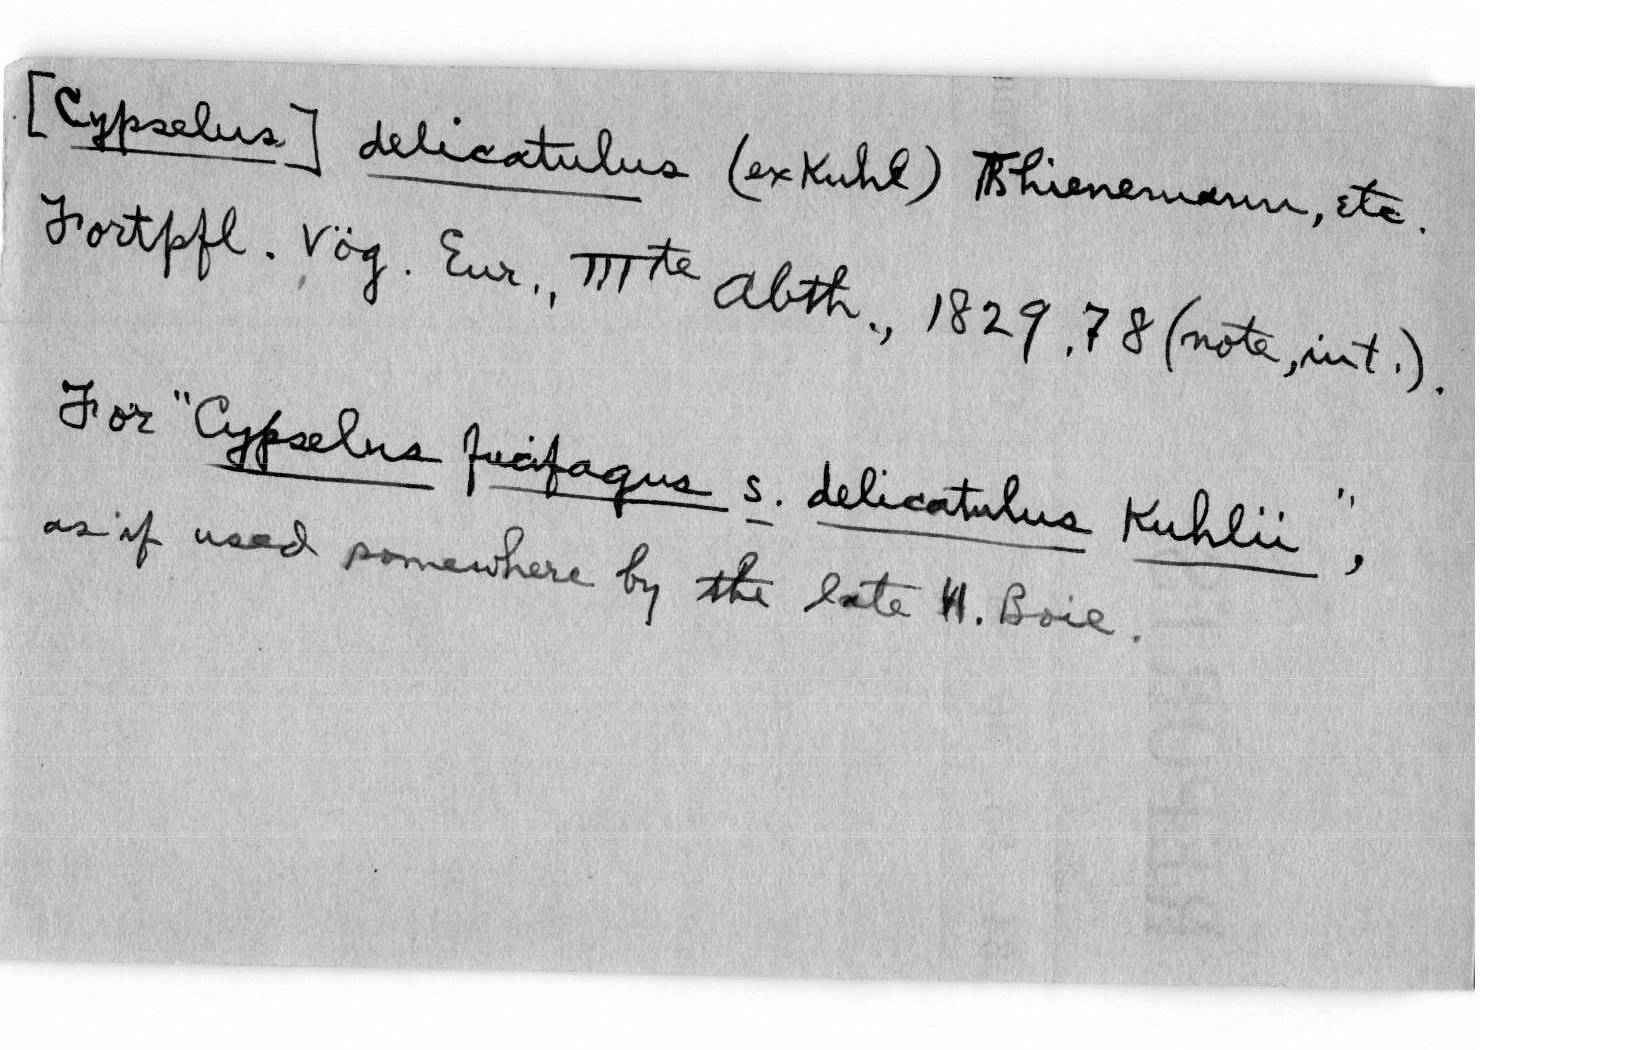 [Cypselus] delicatulus (ex Kuhl) Thienemann, etc.
Fortpfl. Vög. Eur., IIIte Abth., 1829, 78 (note, int.).
For "Cypselus fucifagus s. delicatulus Kuhlii",
as if used somewhere by the late H. Boie.